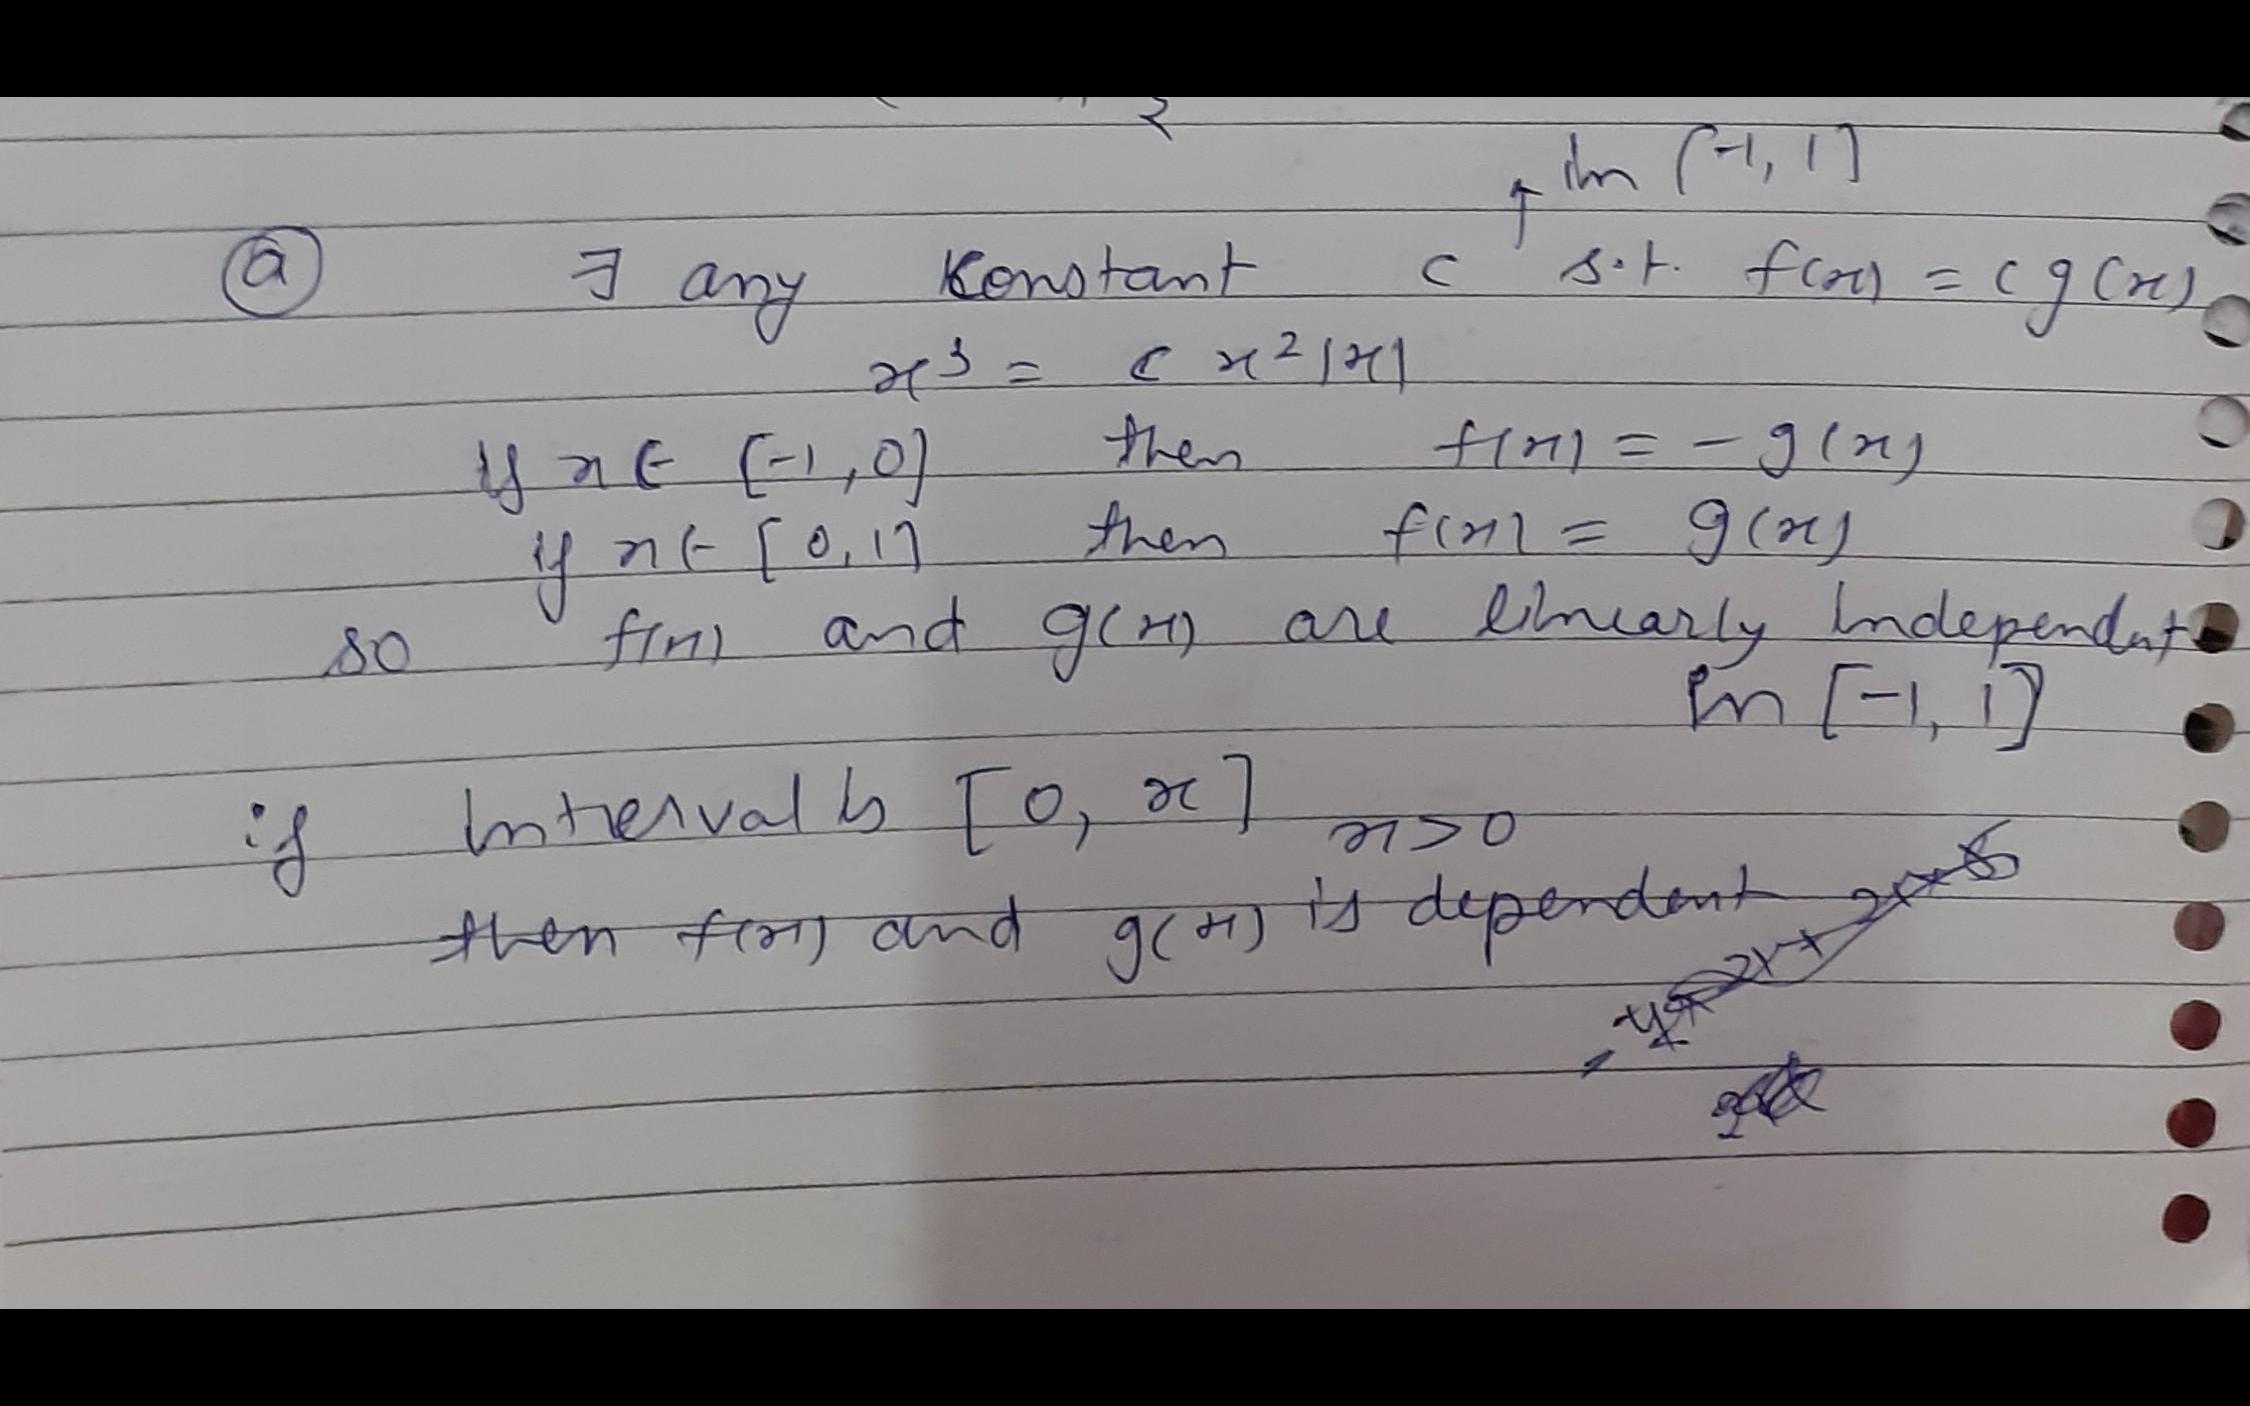 2
in [-1, 1]
(a) ∃ any Konstant c ↑ s.t. f(x) = c g(x)
x³ = c x²|x|
if x ∈ [-1, 0] then f(x) = - g(x)
if x ∈ [0, 1] then f(x) = g(x)
so f(x) and g(x) are linearly independent
in [-1, 1]
if interval is [0, x] x>0
then f(x) and g(x) is dependent